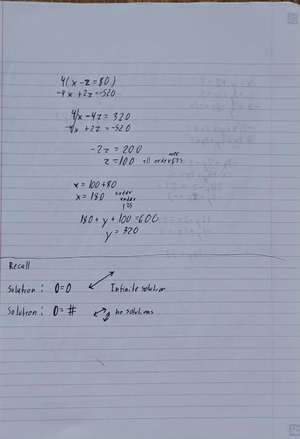 4(x - z = 80)
-4x + 2z = -520
4x - 4z = 320
-4x + 2z = -520
-2z = -200
z = 100 all orders 
x = 100 + 80
x = 180 under
180 + y + 100 = 600
y = 320
Recall
Solution: 0=0 Infinite solution
Solution: 0=# no solutions